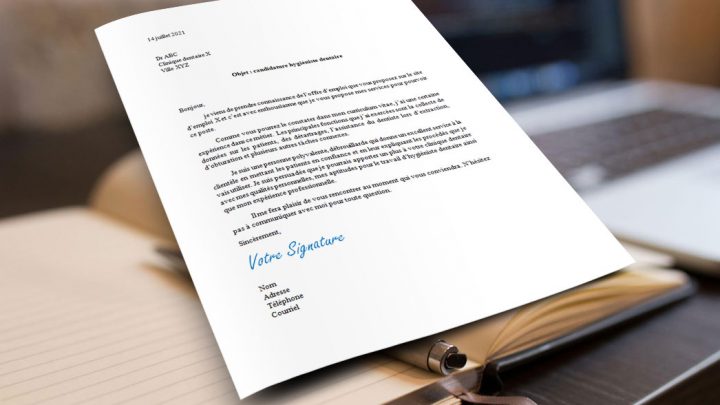 14 juillet 2021
Dr ABC
Clinique dentaire X
Ville XYZ
Objet : candidature hygiéniste dentaire
Bonjour,
je viens de prendre connaissance de l'offre d'emploi que vous proposez sur le site
d'emploi X et c'est avec enthousiasme que je vous propose mes services pour pourvoir
ce poste.
Comme vous pourrez le constater dans mon curriculum vitae, j'ai une certaine
expérience dans ce métier. Les principales fonctions que j'ai exercées sont la collecte de
données sur les patients, des détartrages, l'assistance du dentiste lors d'extraction,
d'obturation et plusieurs autres tâches connexes.
Je suis une personne polyvalente, débrouillarde qui donne un excellent service à la
clientèle en mettant les patients en confiance et en leur expliquant les procédés que je
vais utiliser. Je suis persuadée que je pourrais apporter un plus à votre clinique dentaire
avec mes qualités personnelles, mes aptitudes pour le travail d'hygiéniste dentaire ainsi
que mon expérience professionnelle.
Il me fera plaisir de vous rencontrer au moment qui vous conviendra. N'hésitez
pas à communiquer avec moi pour toute question.
Sincèrement,
Votre Signature
Nom
Adresse
Téléphone
Courriel